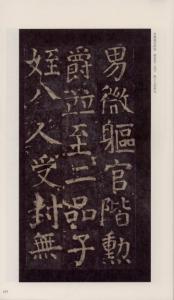 男微軀官階勳
爵並至三品子
姪八人受封無